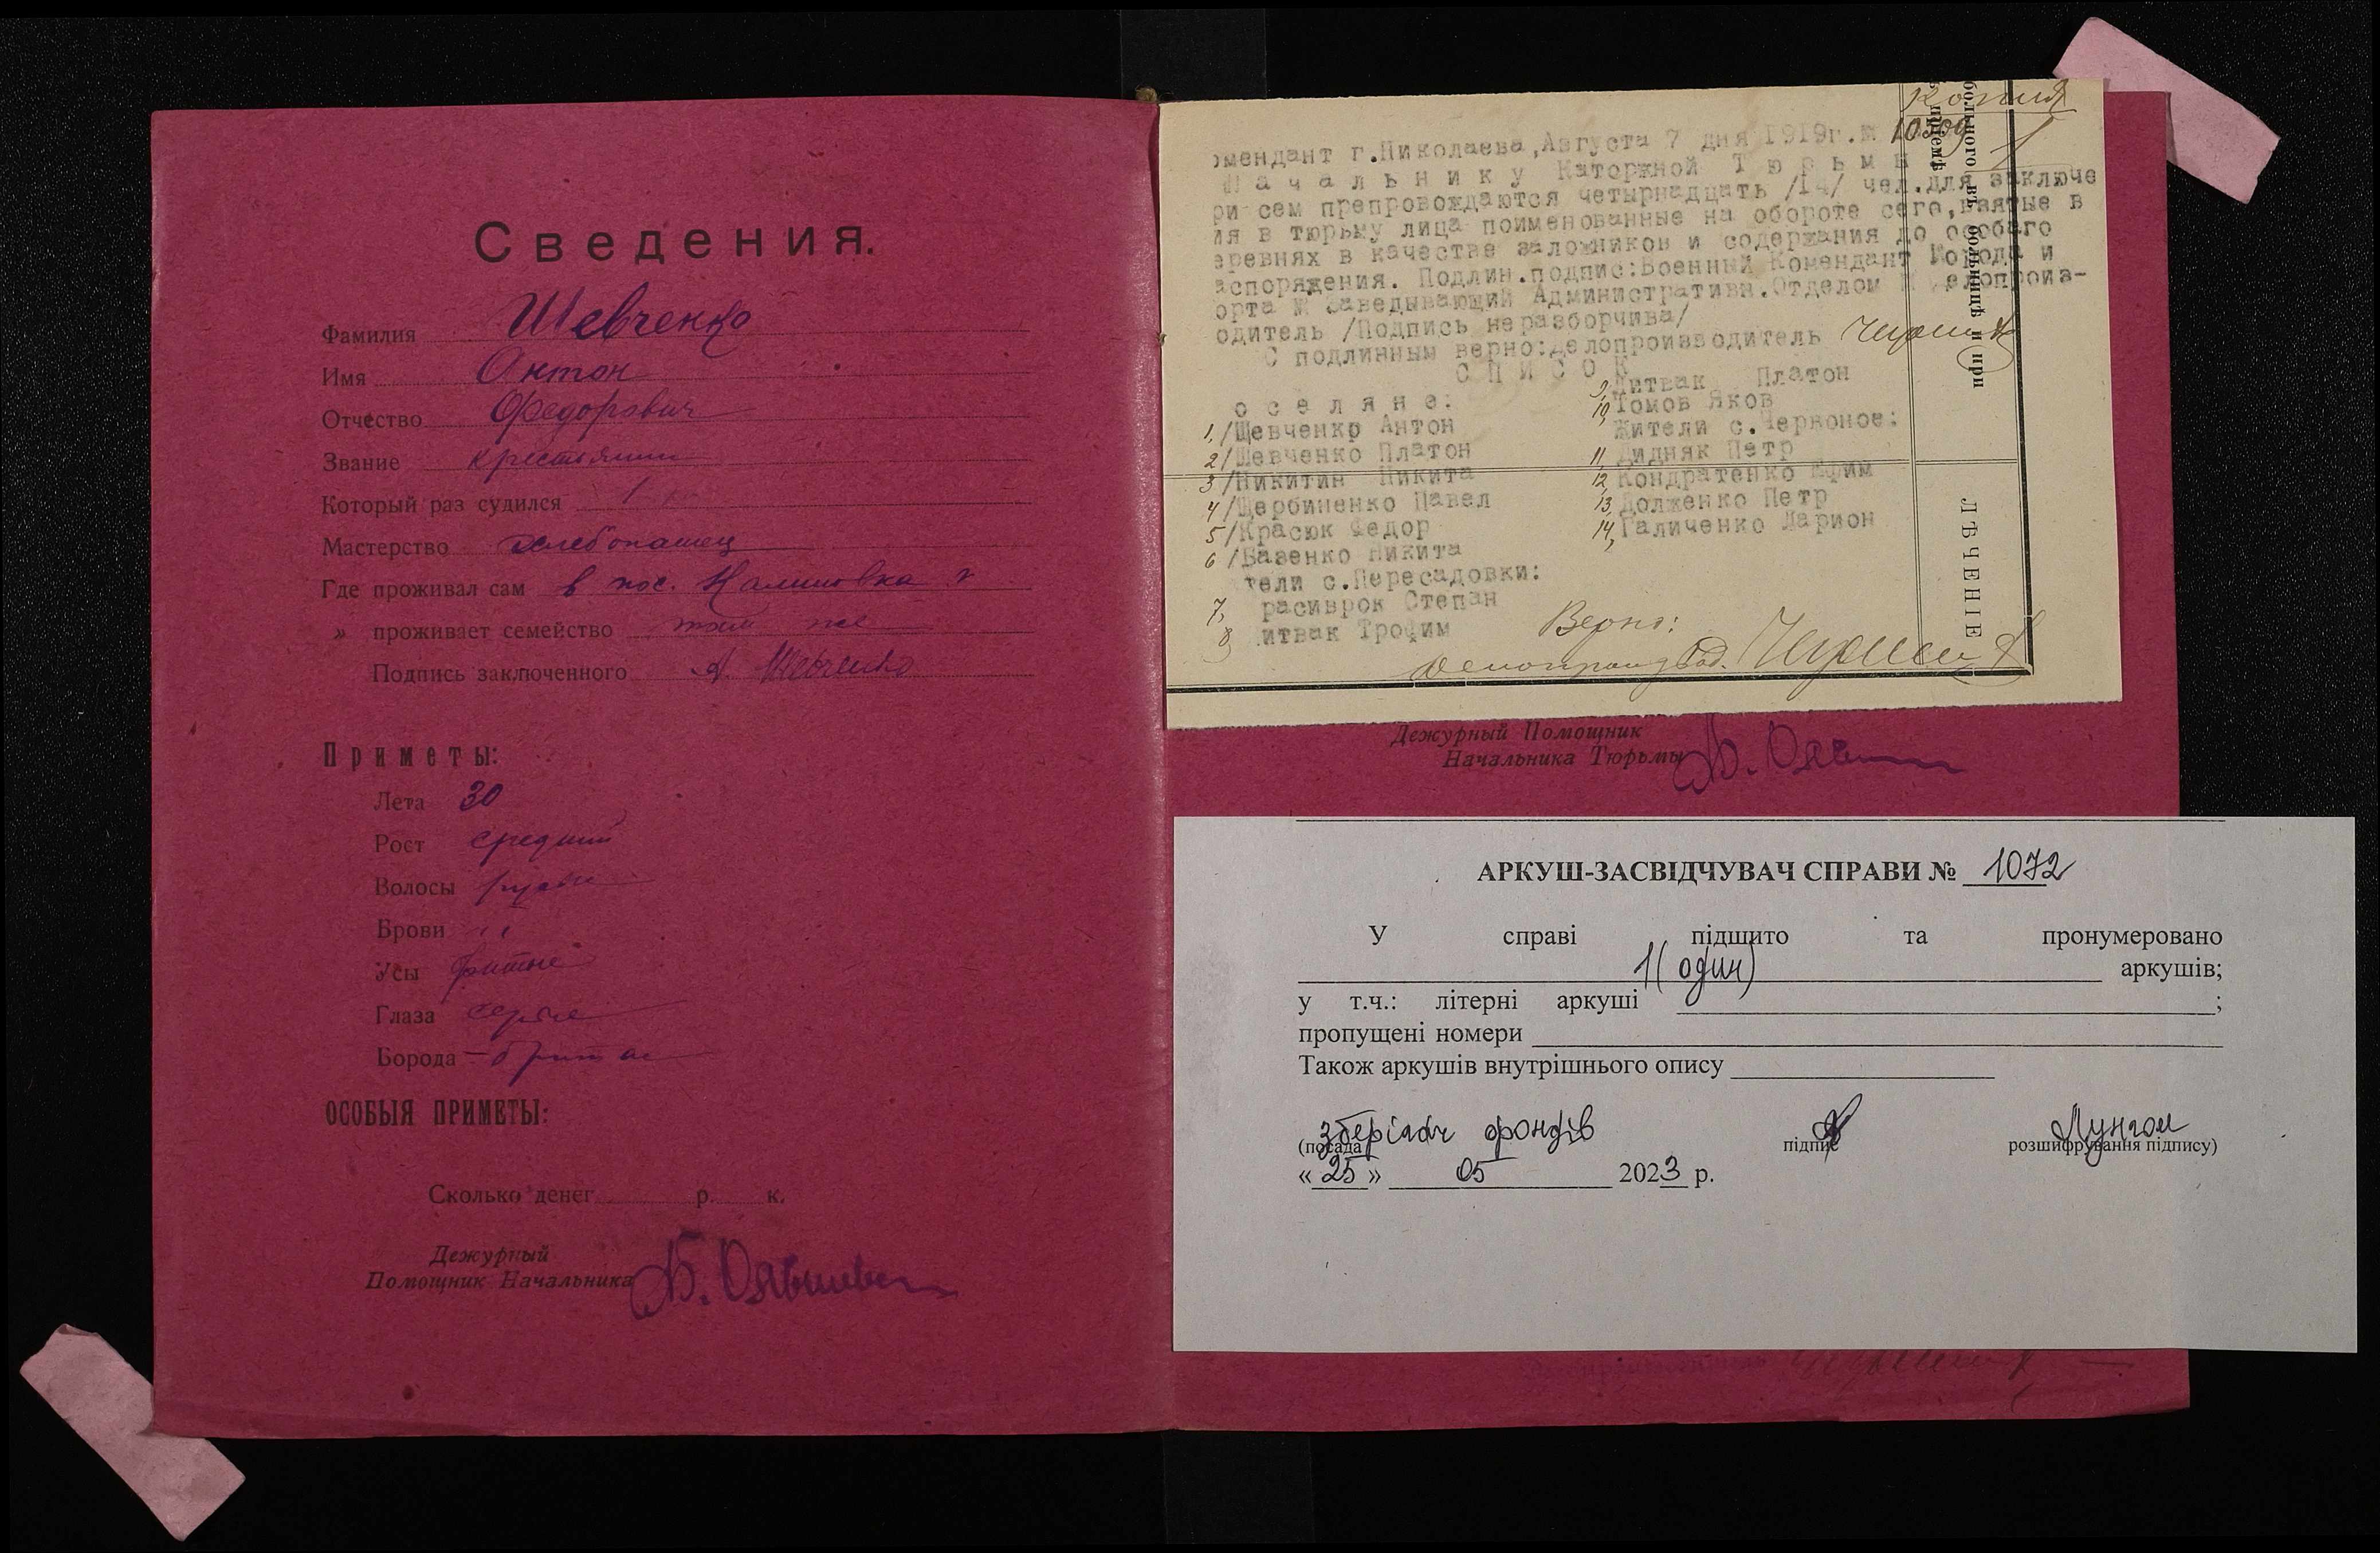 Сведения.
Фамилия Шевченко
Имя Антон
Отчество Федорович
Звание крестьянин
Который раз судился 1
Мастерство хлебопашец
Где проживал сам в пос. Калиновка
» проживает семейство там же
Подпись заключенного А. Шевченко
Приметы:
Лета 30
Рост средний
Волосы русые
Брови "
Усы бритые
Глаза серые
Борода – бритая
ОСОБЫЯ ПРИМЕТЫ:
Сколько денег р. к.
Дежурный
Помощник Начальника
Копия
омендант г.Николаева,Августа 7 дня 1919г.№ 10509
1
Начальнику Каторжной Тюрьмы
ри сем препровождаются четырнадцать /14/ чел.для заключе
ия в тюрьму лица поименованные на обороте сего,взятые в
еревнях в качестве заложников и содержания до особаго
аспоряжения. Подлин.подпис:Военный Комендант Города и
орта № Заведывающий Административн.Отделом Делопроиз-
одитель /Подпись неразборчива/
С подлинным верно:делопроизводитель
СПИСОК
оселяне:
1,/Шевченко Антон
2/Шевченко Платон
3/Никитин Никита
4/Щербиненко Павел
5/Красюк Федор
6/Вазенко Никита
тели с.Пересадовки:
7, расиврок Степан
8 итвак Трофим
9, Литвак Платон
10, Томов Яков
Жители с.Червоное:
11, Дидняк Петр
12, Кондратенко Ефим
13, Долженко Петр
14, Галиченко Ларион
Верно:
Делопроизвод.
больного въ больницѣ и при
ЛѢЧЕНІЕ
Дежурный Помощник
Начальника Тюрьмы
АРКУШ-ЗАСВІДЧУВАЧ СПРАВИ № 1072
У справі підшито та пронумеровано
1(один) аркушів;
у т.ч.: літерні аркуші ;
пропущені номери
Також аркушів внутрішнього опису
зберігач фондів Лунгол
(посада підпис розшифрування підпису)
« 25 » 05 2023 р.